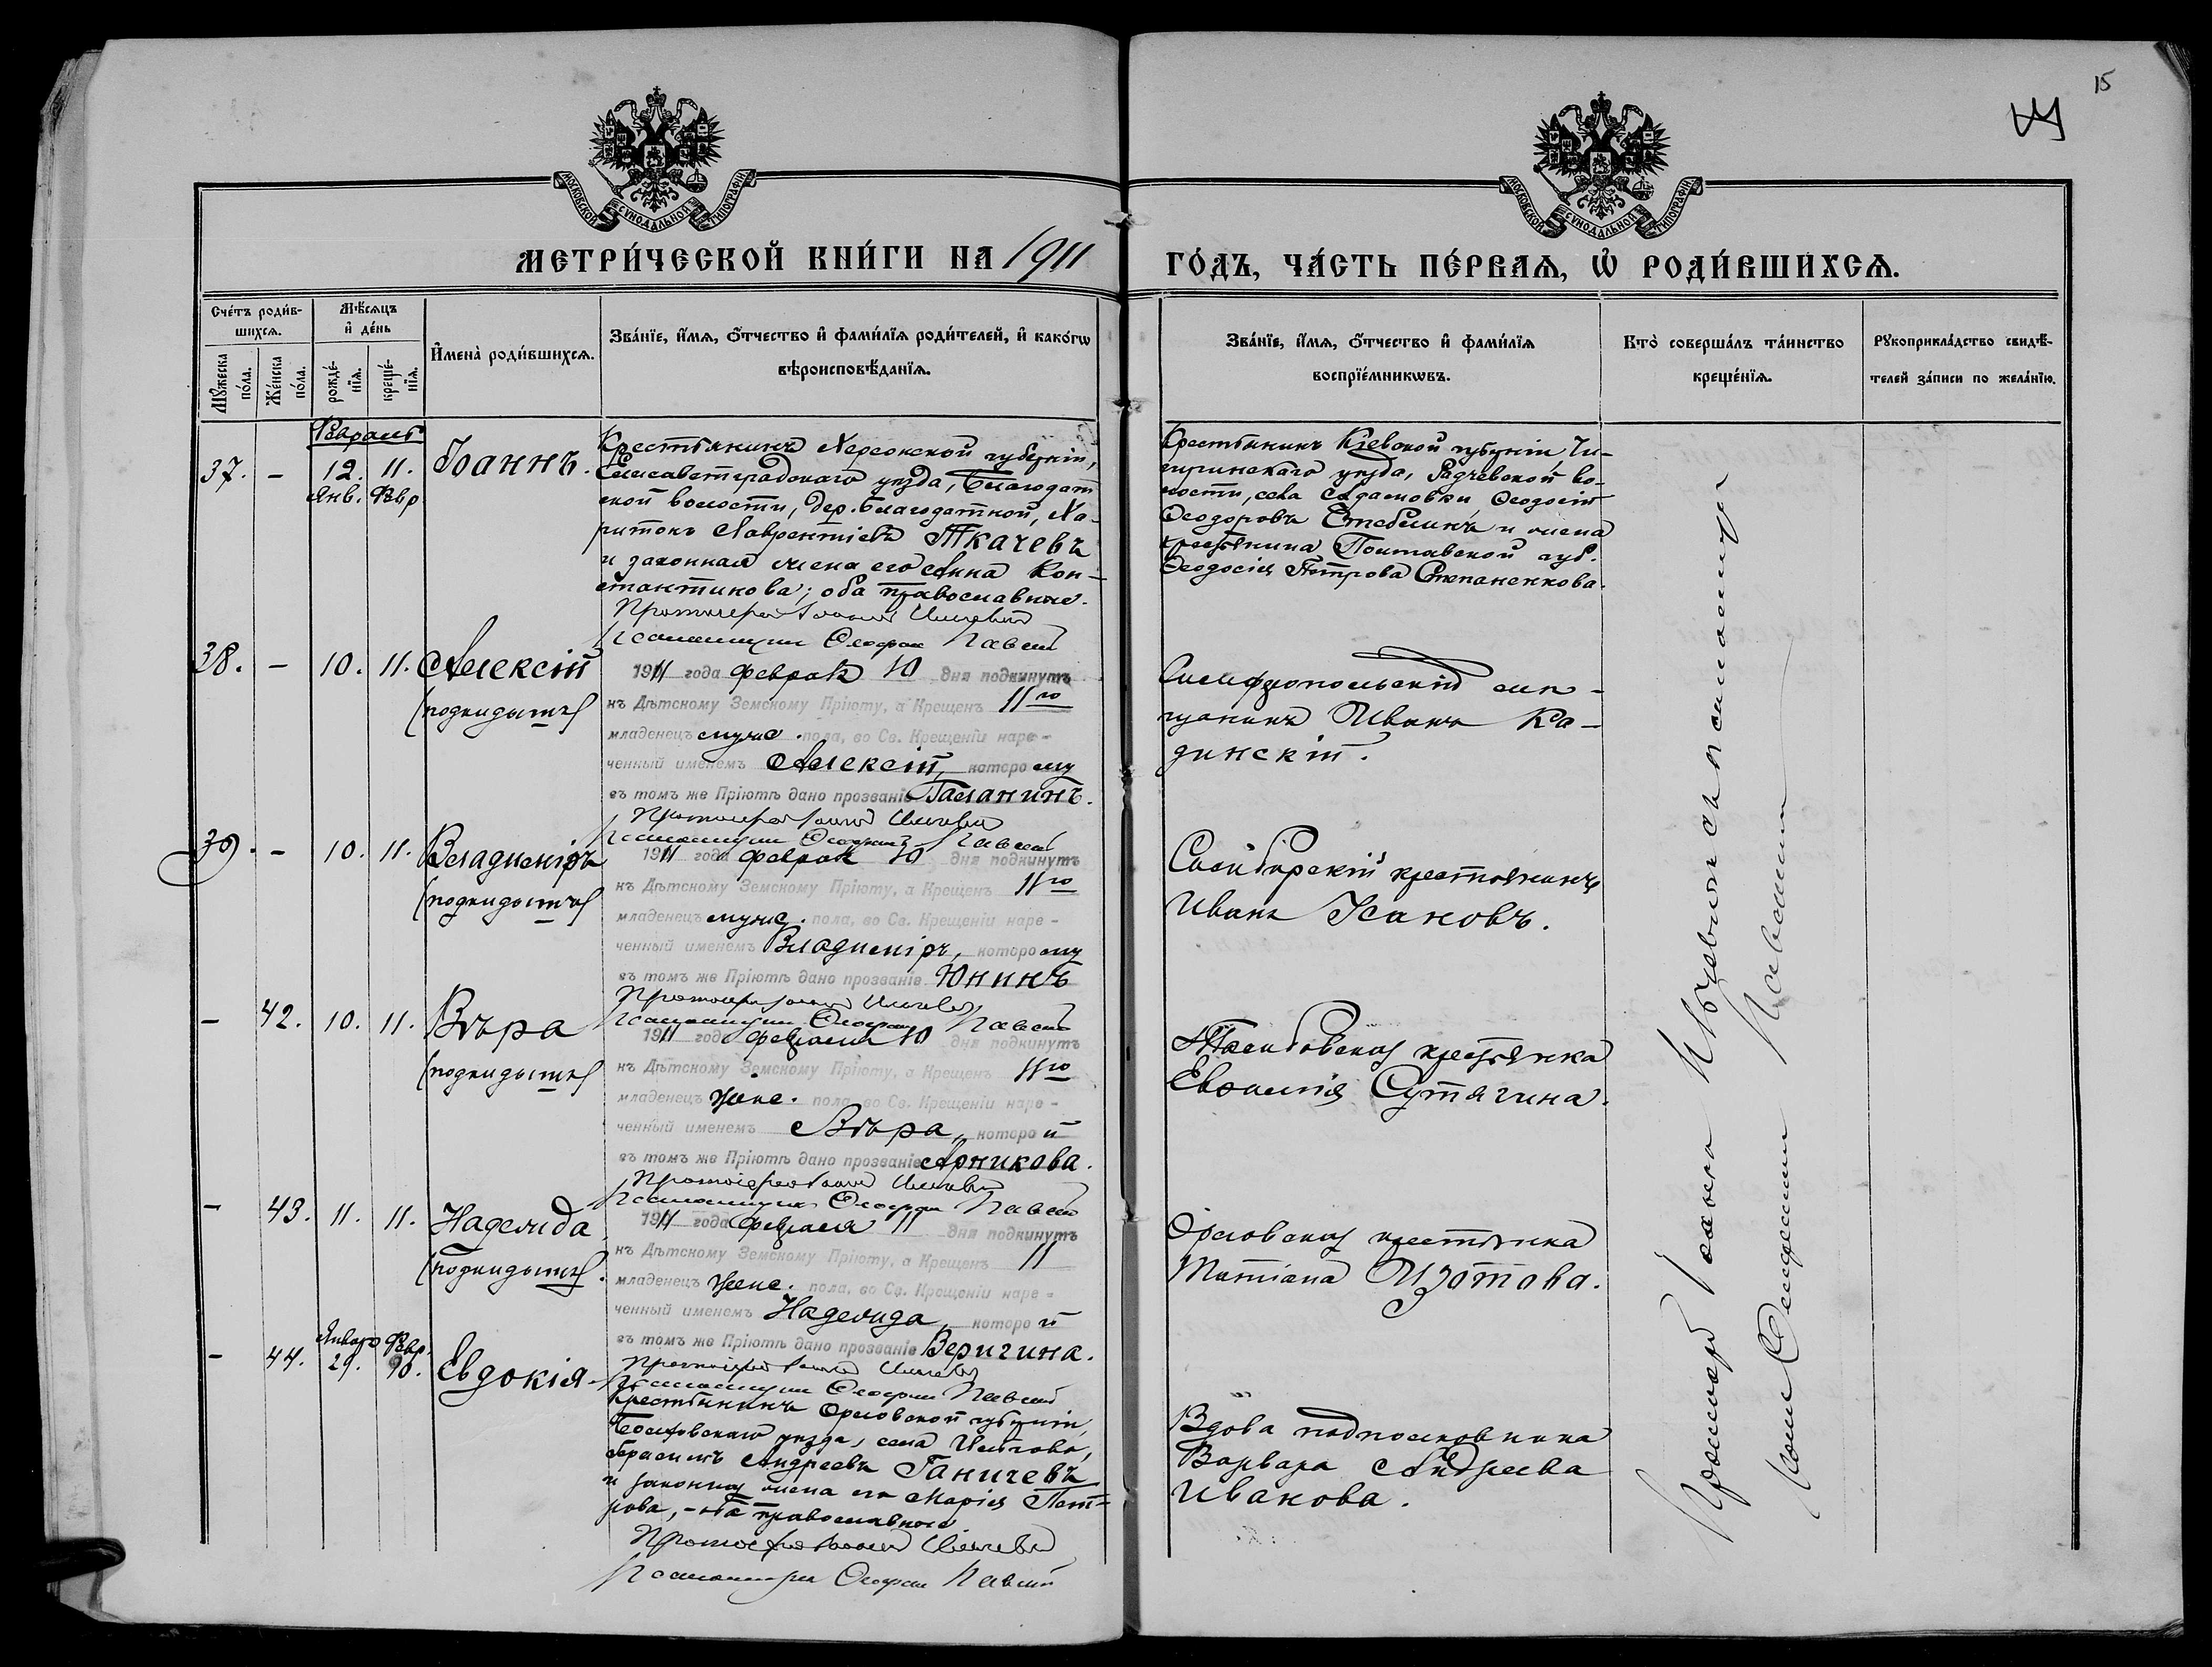 15
МОСКОВСКОЙ СУНОДАЛЬНОЙ ТИПОГРАФІИ
МОСКОВСКОЙ СУНОДАЛЬНОЙ ТИПОГРАФІИ
МЕТРИ́ЧЕСКОЙ КНИ́ГИ НА 1911
ГО́ДЪ, ЧА́СТЬ ПЕ́РВАѦ, Ѡ҆ РОДИ́ВШИХСѦ.
Сче́тъ роди́в-
шихсѧ.
Мѣ́сѧцъ
и҆ де́нь
Мꙋ́жеска
по́ла.
Же́нска
по́ла.
рожде́-
нїѧ.
креще́-
нїѧ.
И҆мена̀ роди́вшихсѧ.
Зва́нїе, и҆́мѧ, ѻ҆́тчество и҆ фами́лїѧ роди́телей, и҆ како́гѡ
вѣроисповѣ́данїѧ.
Зва́нїе, и҆́мѧ, ѻ҆́тчество и҆ фами́лїѧ
воспрїе́мникѡвъ.
Кто̀ соверша́лъ та́инство
креще́нїѧ.
Рꙋкоприкла́дство свидѣ́-
телей за́писи по жела́нїю.
Февраль
37. - 12. 11. Іоаннъ.
Янв. Февр
Крестьянинъ Херсонской губерніи,
Елисаветградскаго уезда, Благодат
ной волости, дер. Благодатной, Ха-
ритонъ Лаврентіевъ Ткачевъ
и законная жена его Анна Кон-
стантинова; оба православные.
Протоіерей Іоаннъ
Псаломщикъ
Крестьянинъ Кіевской губерніи, Чи-
гиринскаго уезда, во-
лости, села Адамовки Феодосій
Феодоровъ Стеблинъ и жена
крестьянина Полтавской губ.
Феодосія Петрова Степаненкова.
38. - 10. 11. Алексій
(подкидышъ)
1911 года Февраля 10 дня подкинутъ
къ Дѣтскому Земскому Пріюту, а Крещенъ 11го
младенецъ муж. пола, во Св. Крещеніи наре-
ченный именемъ Алексій, которому
въ томъ же Пріютѣ дано прозваніе Галанинъ.
Протоіерей Іоаннъ
Псаломщикъ
Симферопольскій мѣ-
щанинъ Иванъ Ка-
динскій.
39. - 10. 11. Владиміръ
(подкидышъ)
1911 года Февраля 10 дня подкинутъ
къ Дѣтскому Земскому Пріюту, а Крещенъ 11го
младенецъ муж. пола, во Св. Крещеніи наре-
ченный именемъ Владиміръ, которому
въ томъ же Пріютѣ дано прозваніе Юнинъ
Протоіерей Іоаннъ
Псаломщикъ
Симбирскій крестьянинъ
Иванъ Исановъ.
- 42. 10. 11. Вѣра
(подкидышъ)
1911 года Февраля 10 дня подкинутъ
къ Дѣтскому Земскому Пріюту, а Крещенъ 11го
младенецъ женс. пола, во Св. Крещеніи наре-
ченный именемъ Вѣра, которой
въ томъ же Пріютѣ дано прозваніе Арникова.
Протоіерей Іоаннъ
Псаломщикъ
Тамбовская крестьянка
Евфимія Сутягина.
- 43. 11. 11. Надежда
(подкидышъ).
1911 года Февраля 11 дня подкинутъ
къ Дѣтскому Земскому Пріюту, а Крещенъ 11
младенецъ женс. пола, во Св. Крещеніи наре-
ченный именемъ Надежда, которой
въ томъ же Пріютѣ дано прозваніе Веригина.
Протоіерей Іоаннъ
Псаломщикъ
Орловская крестьянка
Татіана Изотова.
Январь Февр.
- 44. 29. Евдокія.
Крестьянинъ Орловской губерніи,
Болховскаго уезда, села
Андреевъ Ганичевъ
и законная жена его Марія Пет-
рова, - оба православные
Протоіерей Іоаннъ
Псаломщикъ
Вдова подполковника
Варвара Андреева
Иванова.
Протоіерей съ псаломщикомъ